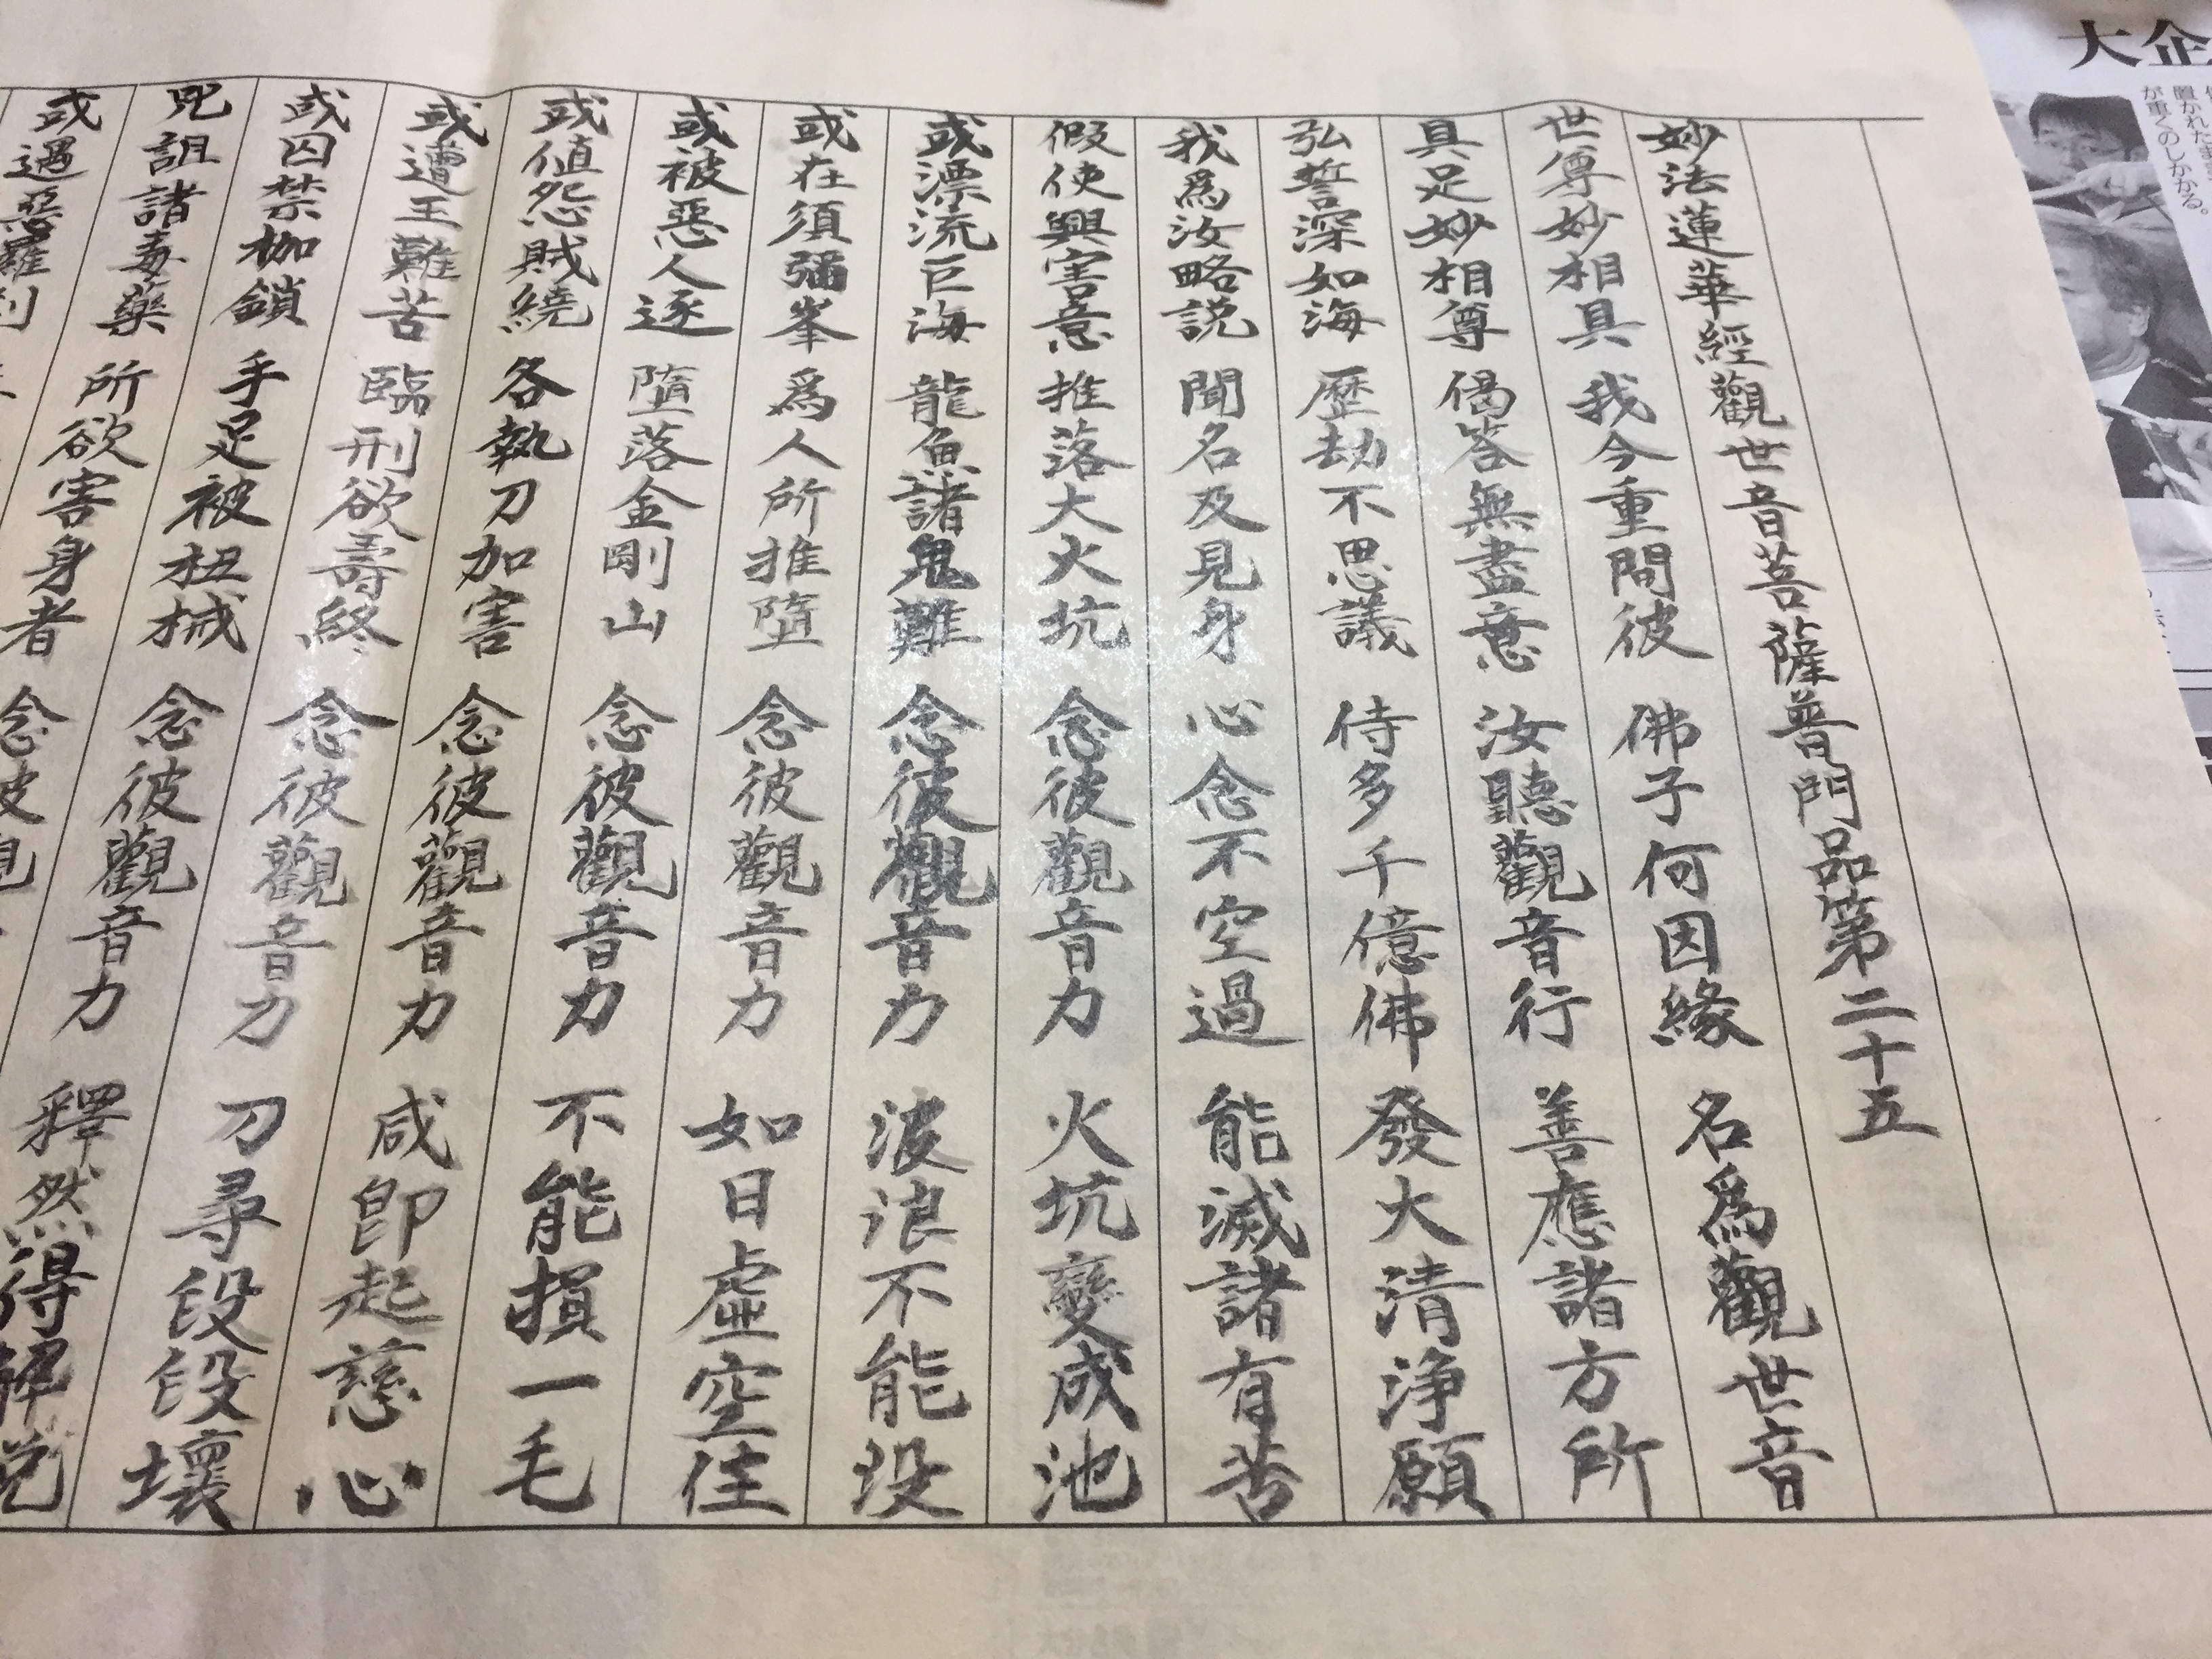 妙法蓮華經觀世音菩薩普門品第二十五
世尊妙相具 我今重問彼 佛子何因緣 名爲觀世音
具足妙相尊 偈答無盡意 汝聽觀音行 善應諸方所
弘誓深如海 歷劫不思議 侍多千億佛 發大清淨願
我爲汝略説 聞名及見身 心念不空過 能滅諸有苦
假使興害意 推落大火坑 念彼觀音力 火坑變成池
或漂流巨海 龍魚諸鬼難 念彼觀音力 波浪不能没
或在須彌峯 爲人所推墮 念彼觀音力 如日虛空住
或被惡人逐 墮落金剛山 念彼觀音力 不能損一毛
或値怨賊繞 各執刀加害 念彼觀音力 咸卽起慈心
或遭王難苦 臨刑欲壽終 念彼觀音力 刀尋段段壞
或囚禁枷鎖 手足被杻械 念彼觀音力 釋然得解脱
呪詛諸毒藥 所欲害身者 念彼觀
或遇惡羅刹
大企
置かれたまま
が重くのしかかる。